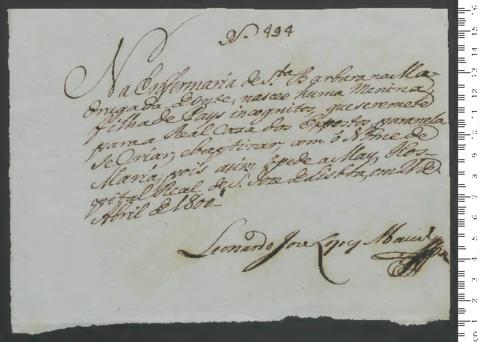 Nº 494
Na Enfermaria de Sta Barbara na Ma-
drugada d'onte, nasceo huma Menina
filha de Pays incognitos, que se remete
para a Real Caza dos Expostos, para nela
se Criar, e baptizar, com o Nome de
Maria; pois asim o pede a May, Hos-
pital Real de S. Joze de Lisboa, em de
Abril de 1800
Leonardo Joze Lopes